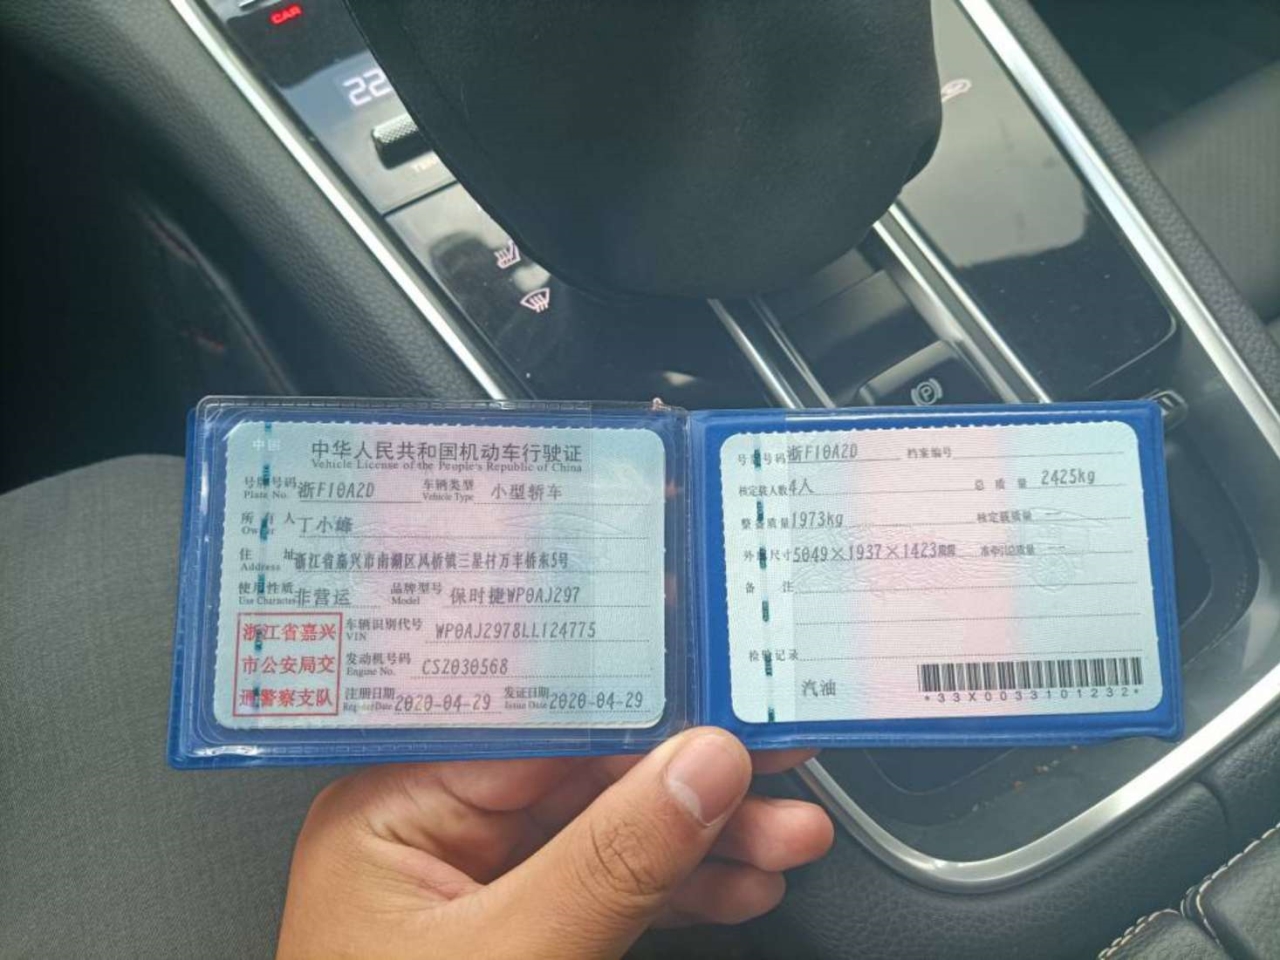 CAR
22
中国
中华人民共和国机动车行驶证
Vehicle License of the People's Republic of China
号牌号码 浙F10A2D 车辆类型 小型轿车
Plate No. Vehicle Type
所有人 丁小峰
Owner
住址 浙江省嘉兴市南湖区凤桥镇三星村万丰桥东5号
Address
使用性质 非营运 品牌型号 保时捷WP0AJ297
Use Character Model
浙江省嘉兴
市公安局交
通警察支队
车辆识别代号 WP0AJ2978LL124775
VIN
发动机号码 CSZ030568
Engine No.
注册日期 2020-04-29 发证日期 2020-04-29
Register Date Issue Date
号牌号码 浙F10A2D 档案编号
核定载人数 4人 总质量 2425kg
整备质量 1973kg 核定载质量 --
外廓尺寸 5049×1937×1423 准牵引总质量 --
备注
检验记录
汽油
*33X0033101232*